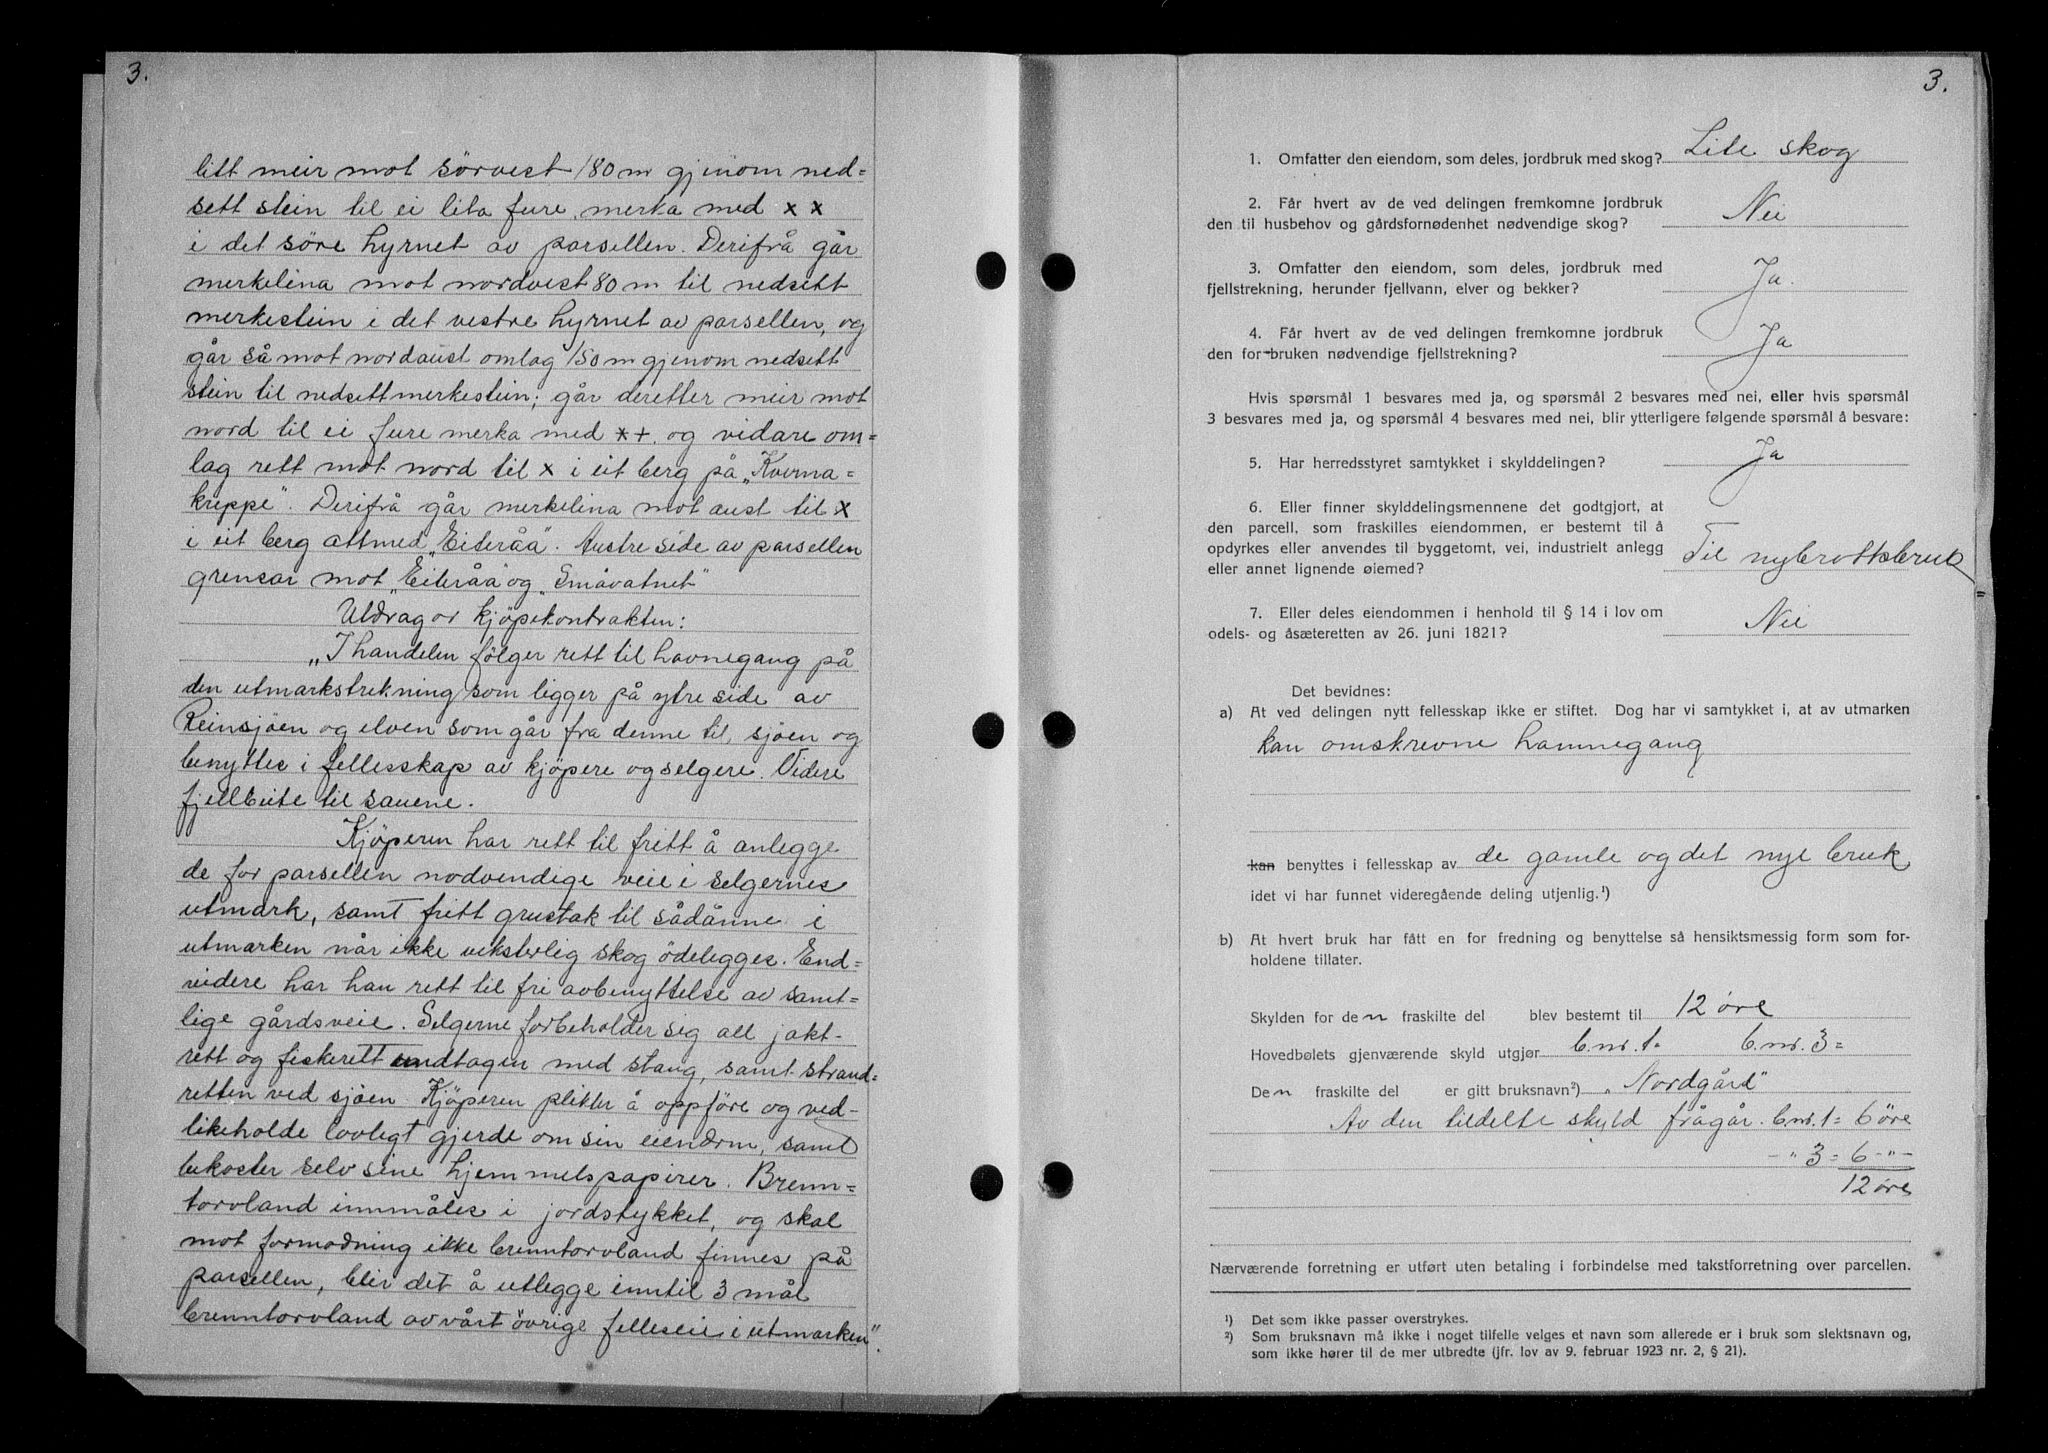 3.
litt meir mot sörvest 180 m gjenom ned=
sett stein til ei lita fure, merka med x x
i det söre hyrnet av parsellen. Derifrå går
merkelina mot nordvest 80 m til nedsett
merkestein i det vestre hyrnet av parsellen, og
går så mot nordaust omlag 150 m gjenom nedsett
stein til nedsett merkestein; går deretter meir mot
nord til ei fure merka med x+, og vidare om=
lag rett mot nord til x i eit berg på „Kverna=
kreppe". Derifrå går merkelina mot aust til x
i eit berg attmed „Eiteråa". Austre side av parsellen
grensar mot „Eiteråa" og „Småvatnet"
Utdrag or kjöpekontrakten:
„I handelen følger rett til havnegang på
den utmarkstrekning som ligger på ytre side av
Reinsjöen og elven som går fra denne til sjöen og
benyttes i fellesskap av kjöpere og selgere. Videre
fjellbeite til sauene.
Kjöperen har rett til fritt å anlegge
de for parsellen nodvendige veie i selgernes
utmark, samt fritt grustak til sådanne i
utmarken når ikke veksterlig skog ödelegges. End=
videre har han rett til fri avbenyttelse av samt=
lige gårdsveie. Selgerne forbeholder sig all jakt-
rett og fiskerett undtagen med stang, samt strand=
retten ved sjöen. Kjöperen plikter å oppföre og ved-
likeholde lovligt gjerde om sin eiendom, samt
bekoster selv sine hjemmelspapirer. Brenn=
torvland innmåles i jordstykket, og skal
mot formodning ikke brenntorvland finnes på
parsellen, blir det å utlegge inntil 3 mål
brenntorvland av vårt övrige felleseie i utmarken".
3.
1. Omfatter den eiendom, som deles, jordbruk med skog? Lite skog
2. Får hvert av de ved delingen fremkomne jordbruk
den til husbehov og gårdsfornødenhet nødvendige skog? Nei
3. Omfatter den eiendom, som deles, jordbruk med
fjellstrekning, herunder fjellvann, elver og bekker? Ja.
4. Får hvert av de ved delingen fremkomne jordbruk
den for bruken nødvendige fjellstrekning? Ja
Hvis spørsmål 1 besvares med ja, og spørsmål 2 besvares med nei, eller hvis spørsmål
3 besvares med ja, og spørsmål 4 besvares med nei, blir ytterligere følgende spørsmål å besvare:
5. Har herredsstyret samtykket i skylddelingen? Ja
6. Eller finner skylddelingsmennene det godtgjort, at
den parcell, som fraskilles eiendommen, er bestemt til å
opdyrkes eller anvendes til byggetomt, vei, industrielt anlegg
eller annet lignende øiemed? Til nybrottsbruk
7. Eller deles eiendommen i henhold til § 14 i lov om
odels- og åsæteretten av 26. juni 1821? Nei
Det bevidnes:
a) At ved delingen nytt fellesskap ikke er stiftet. Dog har vi samtykket i, at av utmarken
kan omskrevne hamnegang
kan benyttes i fellesskap av de gamle og det nye bruk
idet vi har funnet videregående deling utjenlig.¹)
b) At hvert bruk har fått en for fredning og benyttelse så hensiktsmessig form som for-
holdene tillater.
Skylden for den fraskilte del blev bestemt til 12 øre
Hovedbølets gjenværende skyld utgjør b.nr. 1= b.nr. 3=
Den fraskilte del er gitt bruksnavn²) „Nordgård"
Av den tildelte skyld frågår b.nr. 1= 6 øre
-"- 3 = 6 -"-
12 øre
Nærværende forretning er utført uten betaling i forbindelse med takstforretning over parcellen.
¹) Det som ikke passer overstrykes.
²) Som bruksnavn må ikke i noget tilfelle velges et navn som allerede er i bruk som slektsnavn og,
som ikke hører til de mer utbredte (jfr. lov av 9. februar 1923 nr. 2, § 21).